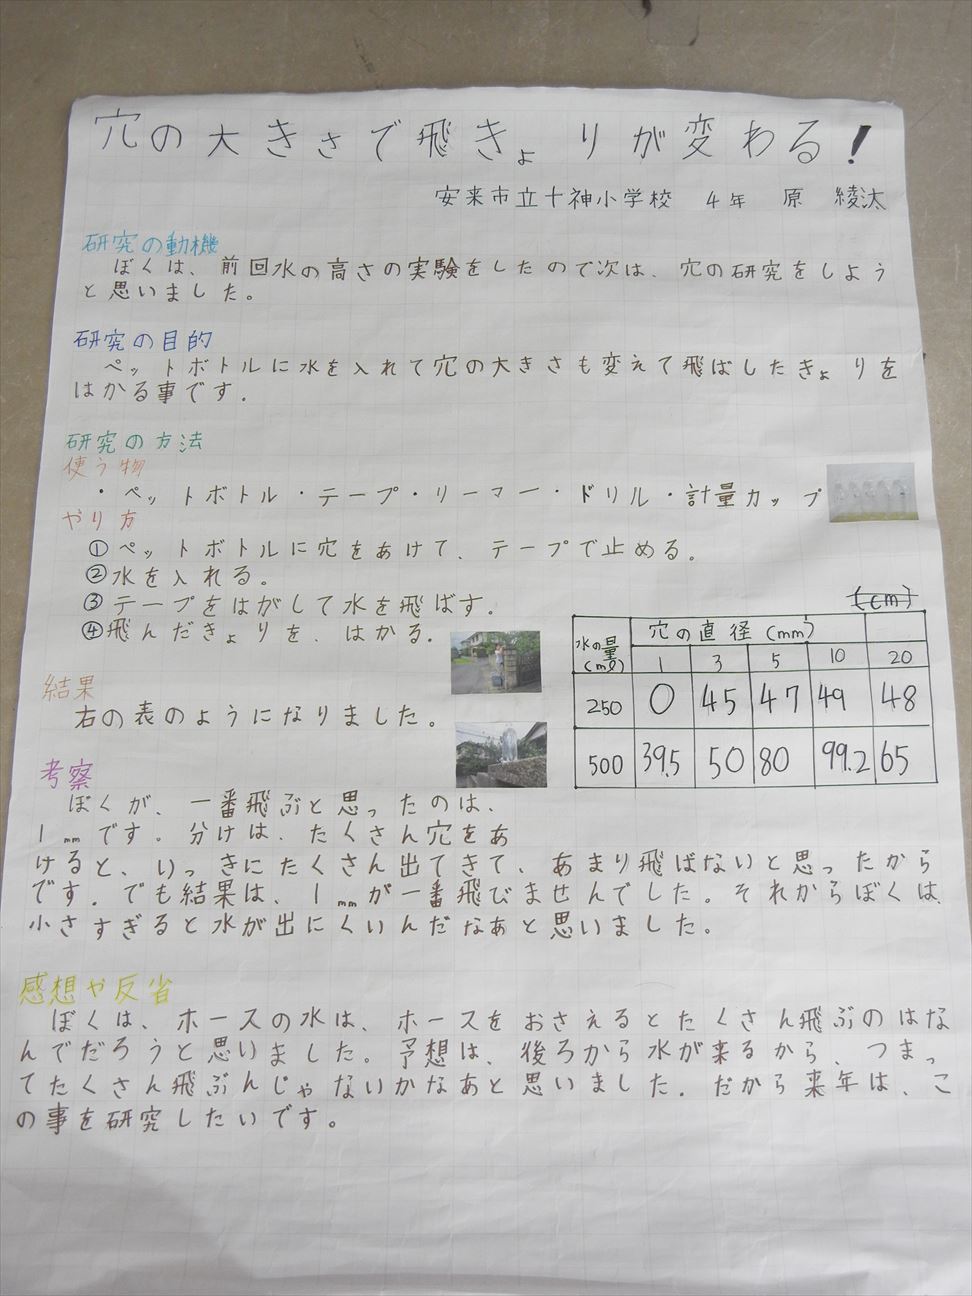 穴の大きさで飛きょりが変わる!
安来市立十神小学校 4年 原 綾汰
研究の動機
ぼくは、前回水の高さの実験をしたので次は、穴の研究をしよう
と思いました。
研究の目的
ペットボトルに水を入れて穴の大きさも変えて飛ばしたきょりを
はかる事です.
研究の方法
使う物
・ペットボトル・テープ・リーマー・ドリル・計量カップ
やり方
①ペットボトルに穴をあけて、テープで止める。
②水を入れる。
③テープをはがして水を飛ばす.
④飛んだきょりを、はかる.
(cm)
水の量(ml) 穴の直径(mm)
1 3 5 10 20
250 0 45 47 49 48
500 39.5 50 80 99.2 65
結果
右の表のようになりました。
考察
ぼくが、一番飛ぶと思ったのは、
1mmです。分けは、たくさん穴をあ
けると、いっきにたくさん出てきて、あまり飛ばないと思ったから
です.でも結果は、1mmが一番飛びませんでした。それからぼくは、
小さすぎると水が出にくいんだなぁと思いました。
感想や反省
ぼくは、ホースの水は、ホースをおさえるとたくさん飛ぶのはな
んでだろうと思いました。予想は、後ろから水が来るから、つまっ
てたくさん飛ぶんじゃないかなあと思いました.だから来年は、こ
の事を研究したいです。